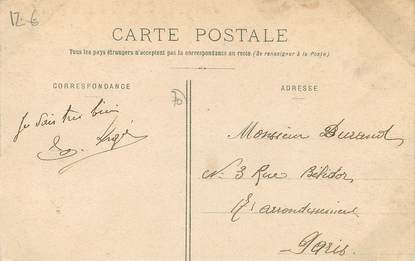 12-6
CARTE POSTALE
Tous les pays étrangers n'acceptent pas la correspondance au recto (Se renseigner à la Poste)
CORRESPONDANCE
ADRESSE
70
Je vais très bien
Monsieur Durand
N. 3 Rue Bélidor
17e arrondissement
Paris